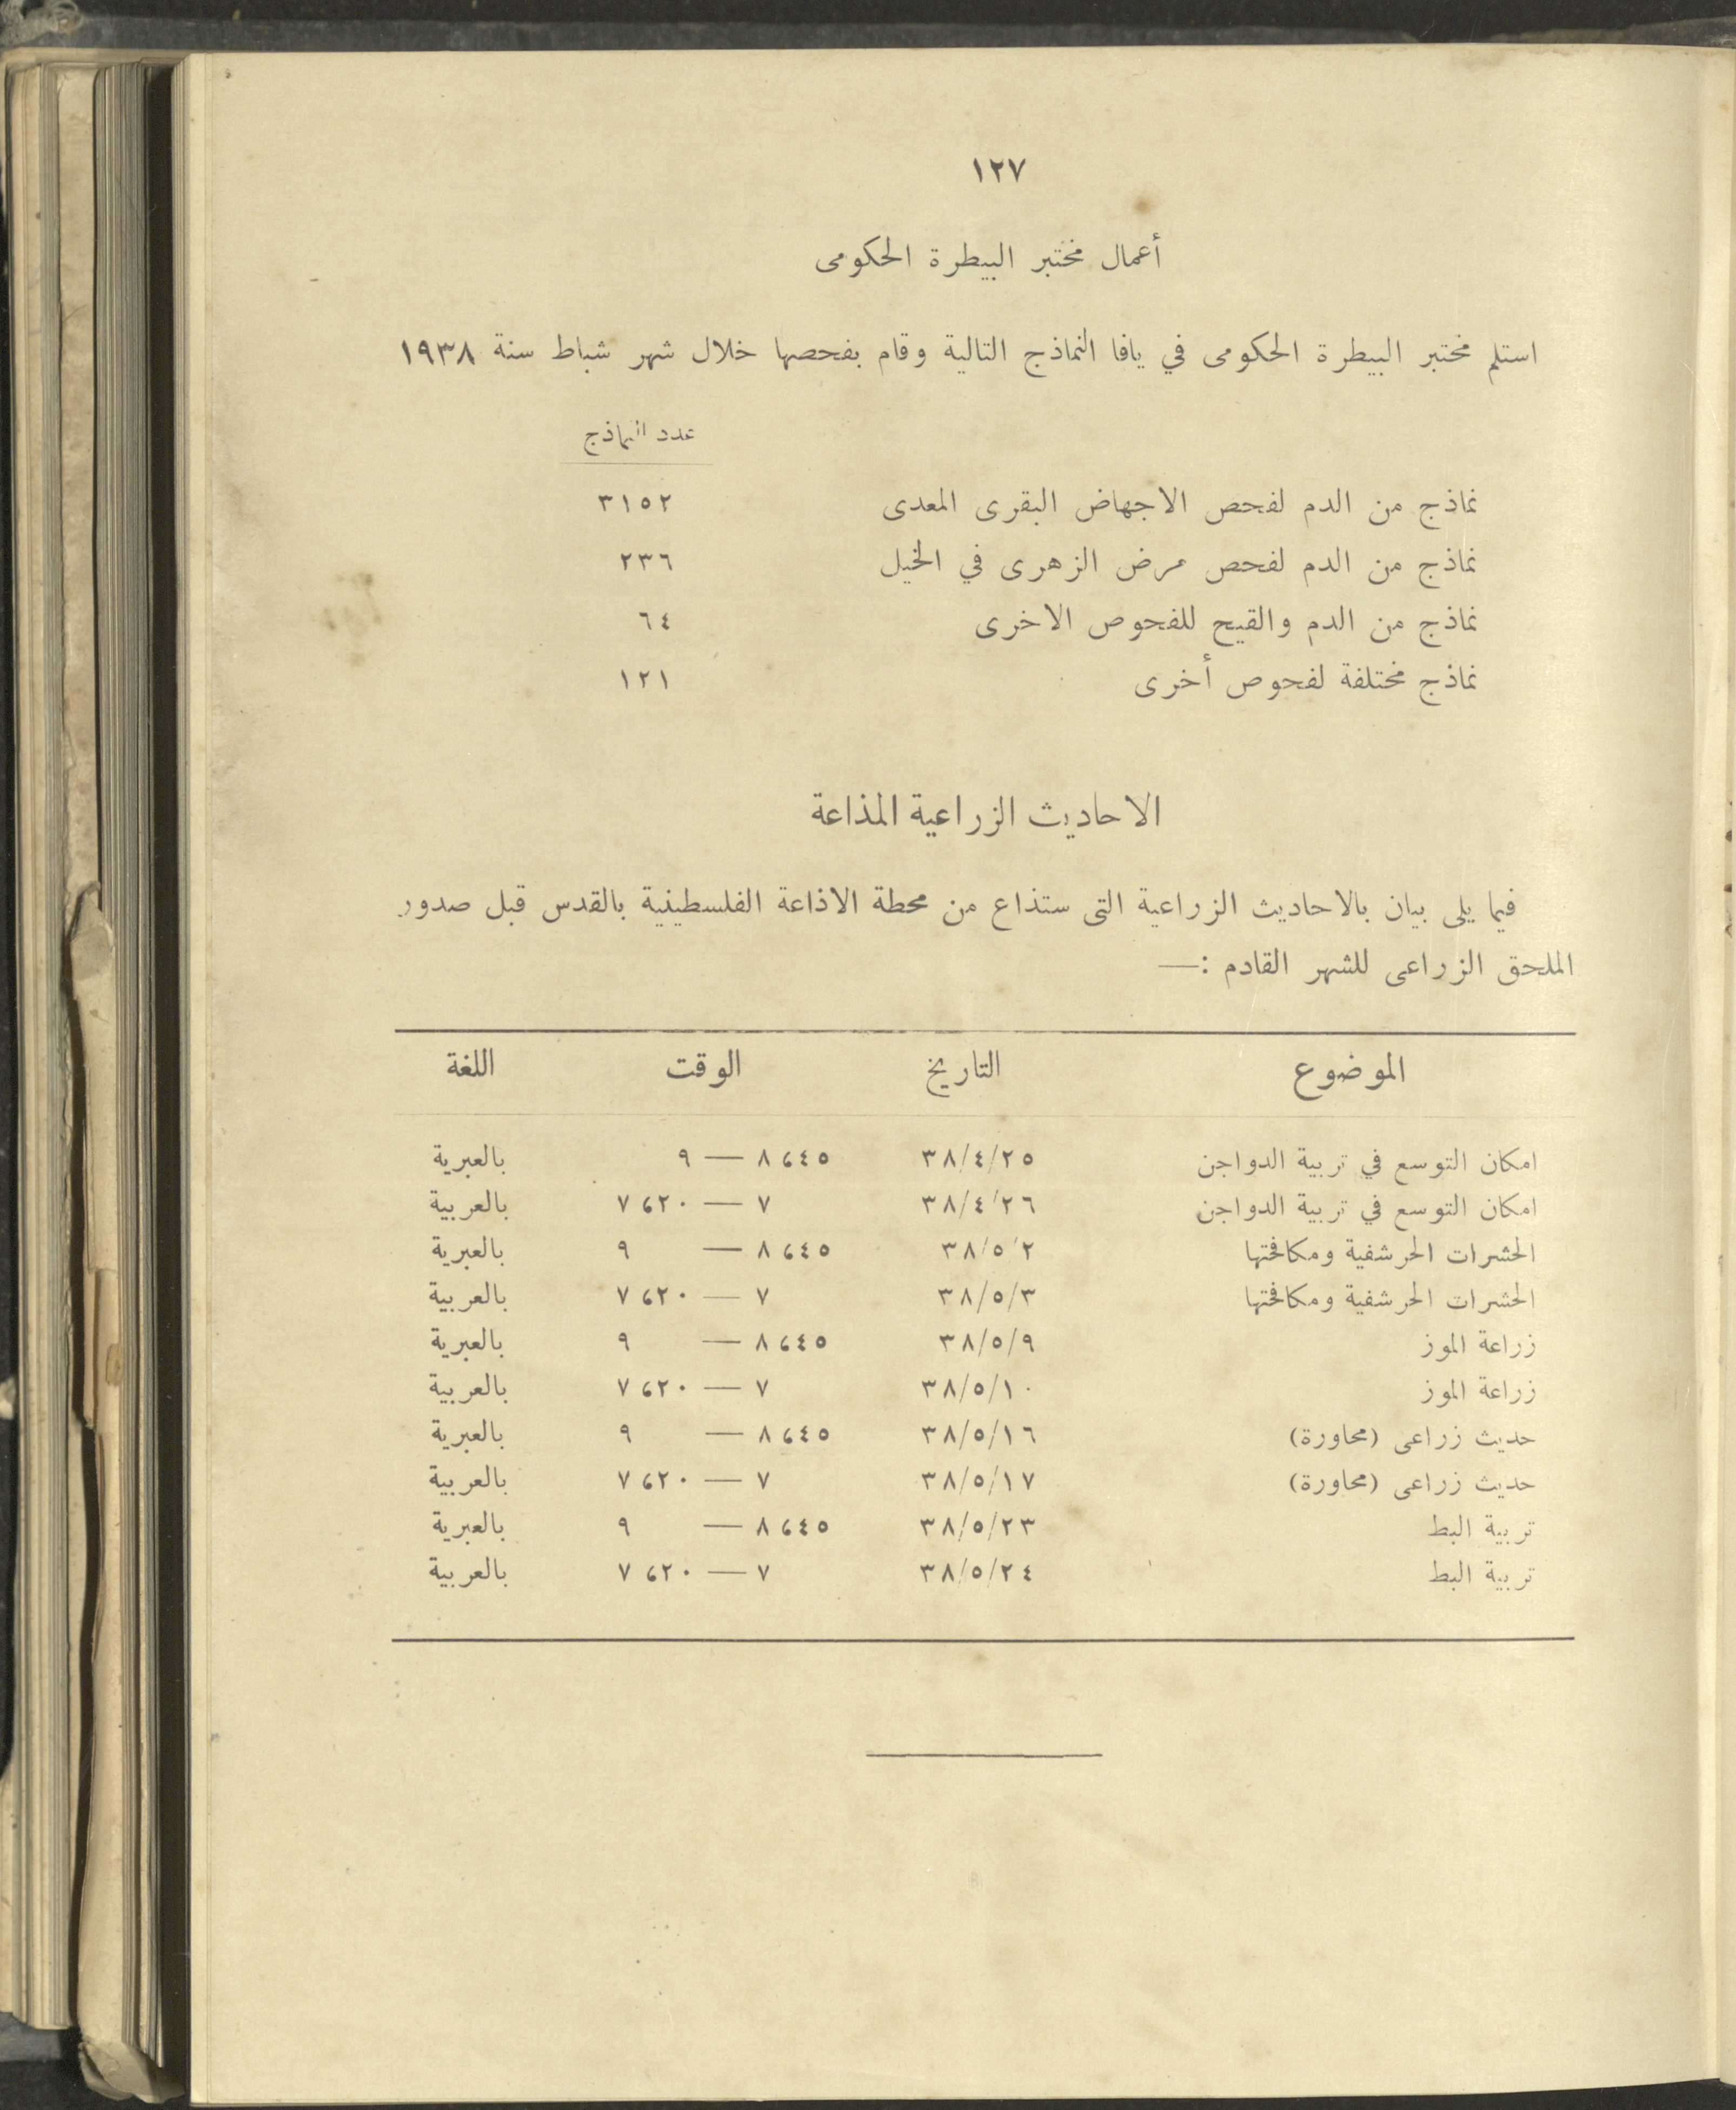 ١٢٧
أعمال مختبر البيطرة الحكومى
استلم مختبر البيطرة الحكومى في يافا النماذج التالية وقام بفحصها خلال شهر شباط سنة ١٩٣٨
عدد النماذج
نماذج من الدم لفحص الاجهاض البقرى المعدى ٣١٥٢
نماذج من الدم لفحص مرض الزهرى في الخيل ٢٣٦
نماذج من الدم والقيح للفحوص الاخرى ٦٤
نماذج مختلفة لفحوص أخرى ١٢١
الاحاديث الزراعية المذاعة
فيما يلى بيان بالاحاديث الزراعية التى ستذاع من محطة الاذاعة الفلسطينية بالقدس قبل صدور
الملحق الزراعى للشهر القادم :—
الموضوع التاريخ الوقت اللغة
امكان التوسع في تربية الدواجن ٣٨/٤/٢٥ ٨،٤٥ — ٩ بالعبرية
امكان التوسع في تربية الدواجن ٣٨/٤/٢٦ ٧ — ٧،٢٠ بالعربية
الحشرات الحرشفية ومكافحتها ٣٨/٥/٢ ٨،٤٥ — ٩ بالعبرية
الحشرات الحرشفية ومكافحتها ٣٨/٥/٣ ٧ — ٧،٢٠ بالعربية
زراعة الموز ٣٨/٥/٩ ٨،٤٥ — ٩ بالعبرية
زراعة الموز ٣٨/٥/١٠ ٧ — ٧،٢٠ بالعربية
حديث زراعى (محاورة) ٣٨/٥/١٦ ٨،٤٥ — ٩ بالعبرية
حديث زراعى (محاورة) ٣٨/٥/١٧ ٧ — ٧،٢٠ بالعربية
تربية البط ٣٨/٥/٢٣ ٨،٤٥ — ٩ بالعبرية
تربية البط ٣٨/٥/٢٤ ٧ — ٧،٢٠ بالعربية